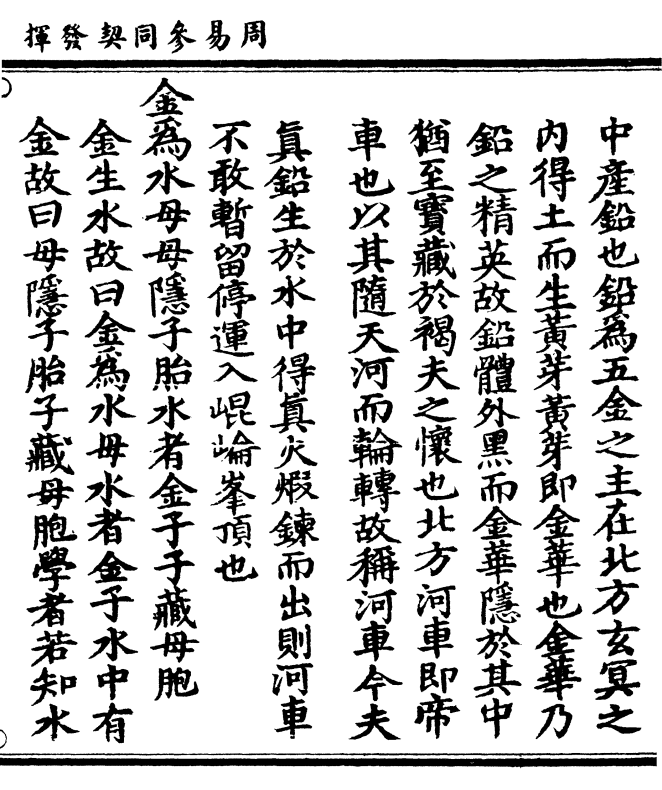 周易參同契發揮
中產鉛也鉛爲五金之主在北方玄冥之
内得土而生黃芽黃芽即金華也金華乃
鉛之精英故鉛體外黑而金華隱於其中
猶至寶藏於褐夫之懷也北方河車即帝
車也以其隨天河而輪轉故稱河車今夫
眞鉛生於水中得眞火煆鍊而出則河車
不敢暫留停運入崐崘峯頂也
金爲水母母隱子胎水者金子子藏母胞
金生水故曰金爲水母水者金子水中有
金故曰母隱子胎子藏母胞學者若知水